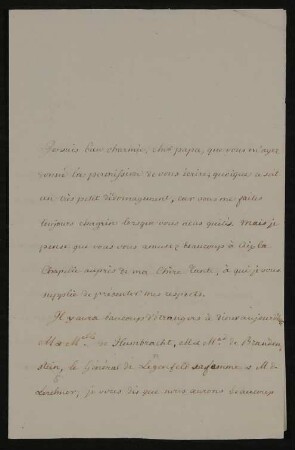 Je suis bien charmée, cher papa, que vous m'ayez
donné la permission de vous écrire, quoique ce soit
un très petit dédomagement, car vous me faites
toujours chagrin lorsque vous nous quités. Mais je
pense que vous vous amusez beaucoup à Aix la
Chapelle auprès de ma Chère Tante, à qui je vous
supplie de présenter mes respects.
Il y aura beaucoup d'étrangers à Dieux aujourd'hui
Mr et Mme de Humbracht, Mr et Me de Branden
stein, le Général de sa femme et Mr
je vous dis que nous aurons beaucoup